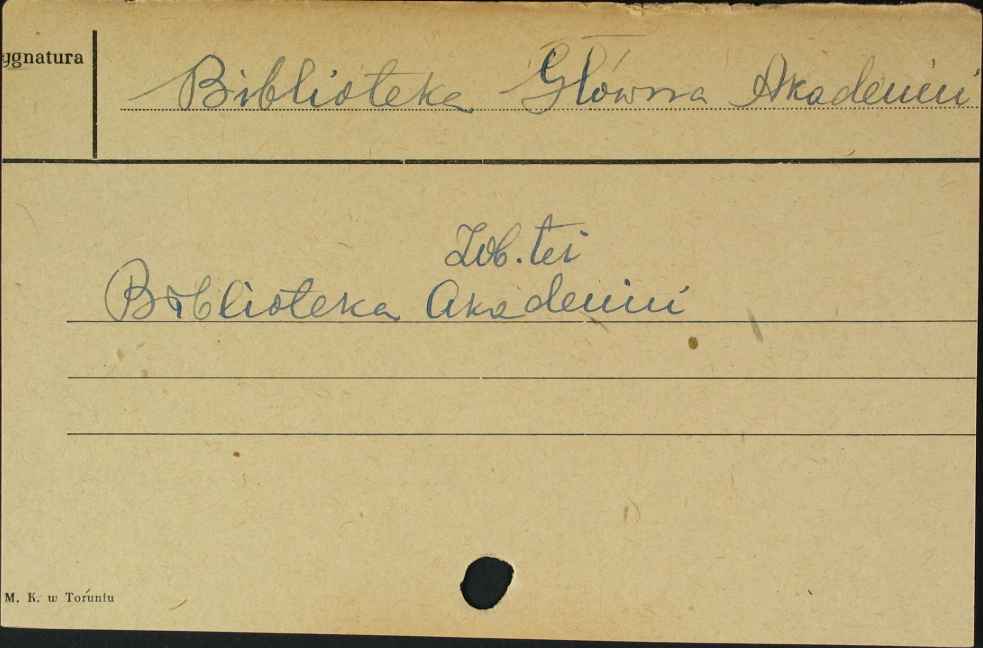 ygnatura
Biblioteka Główna Akademii
Zob. też
Biblioteka Akademii
M. K. w Toruniu